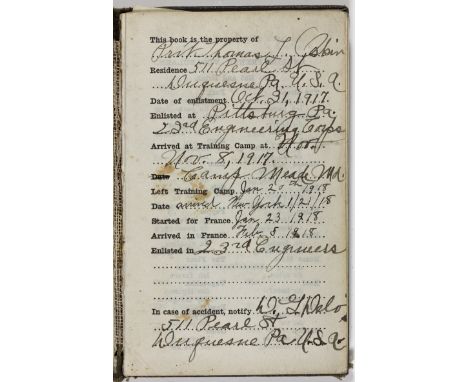 This book is the property of
Thomas
Residence 511 Pearl St
Duquesne Pa. U.S.A
Date of enlistment Oct. 31, 1917.
Enlisted at Pittsburg Pa
23rd Engineering Corps
Arrived at Training Camp at
Nov. 8, 1917.
Date Camp Mead Md.
Left Training Camp Jan 1918
Date arrived New York 1/21/18
Started for France Jan 23 1918
Arrived in France Feb 8 1918
Enlisted in 23rd Engineers
In case of accident, notify
511 Pearl St
Duquesne Pa. U.S.A.